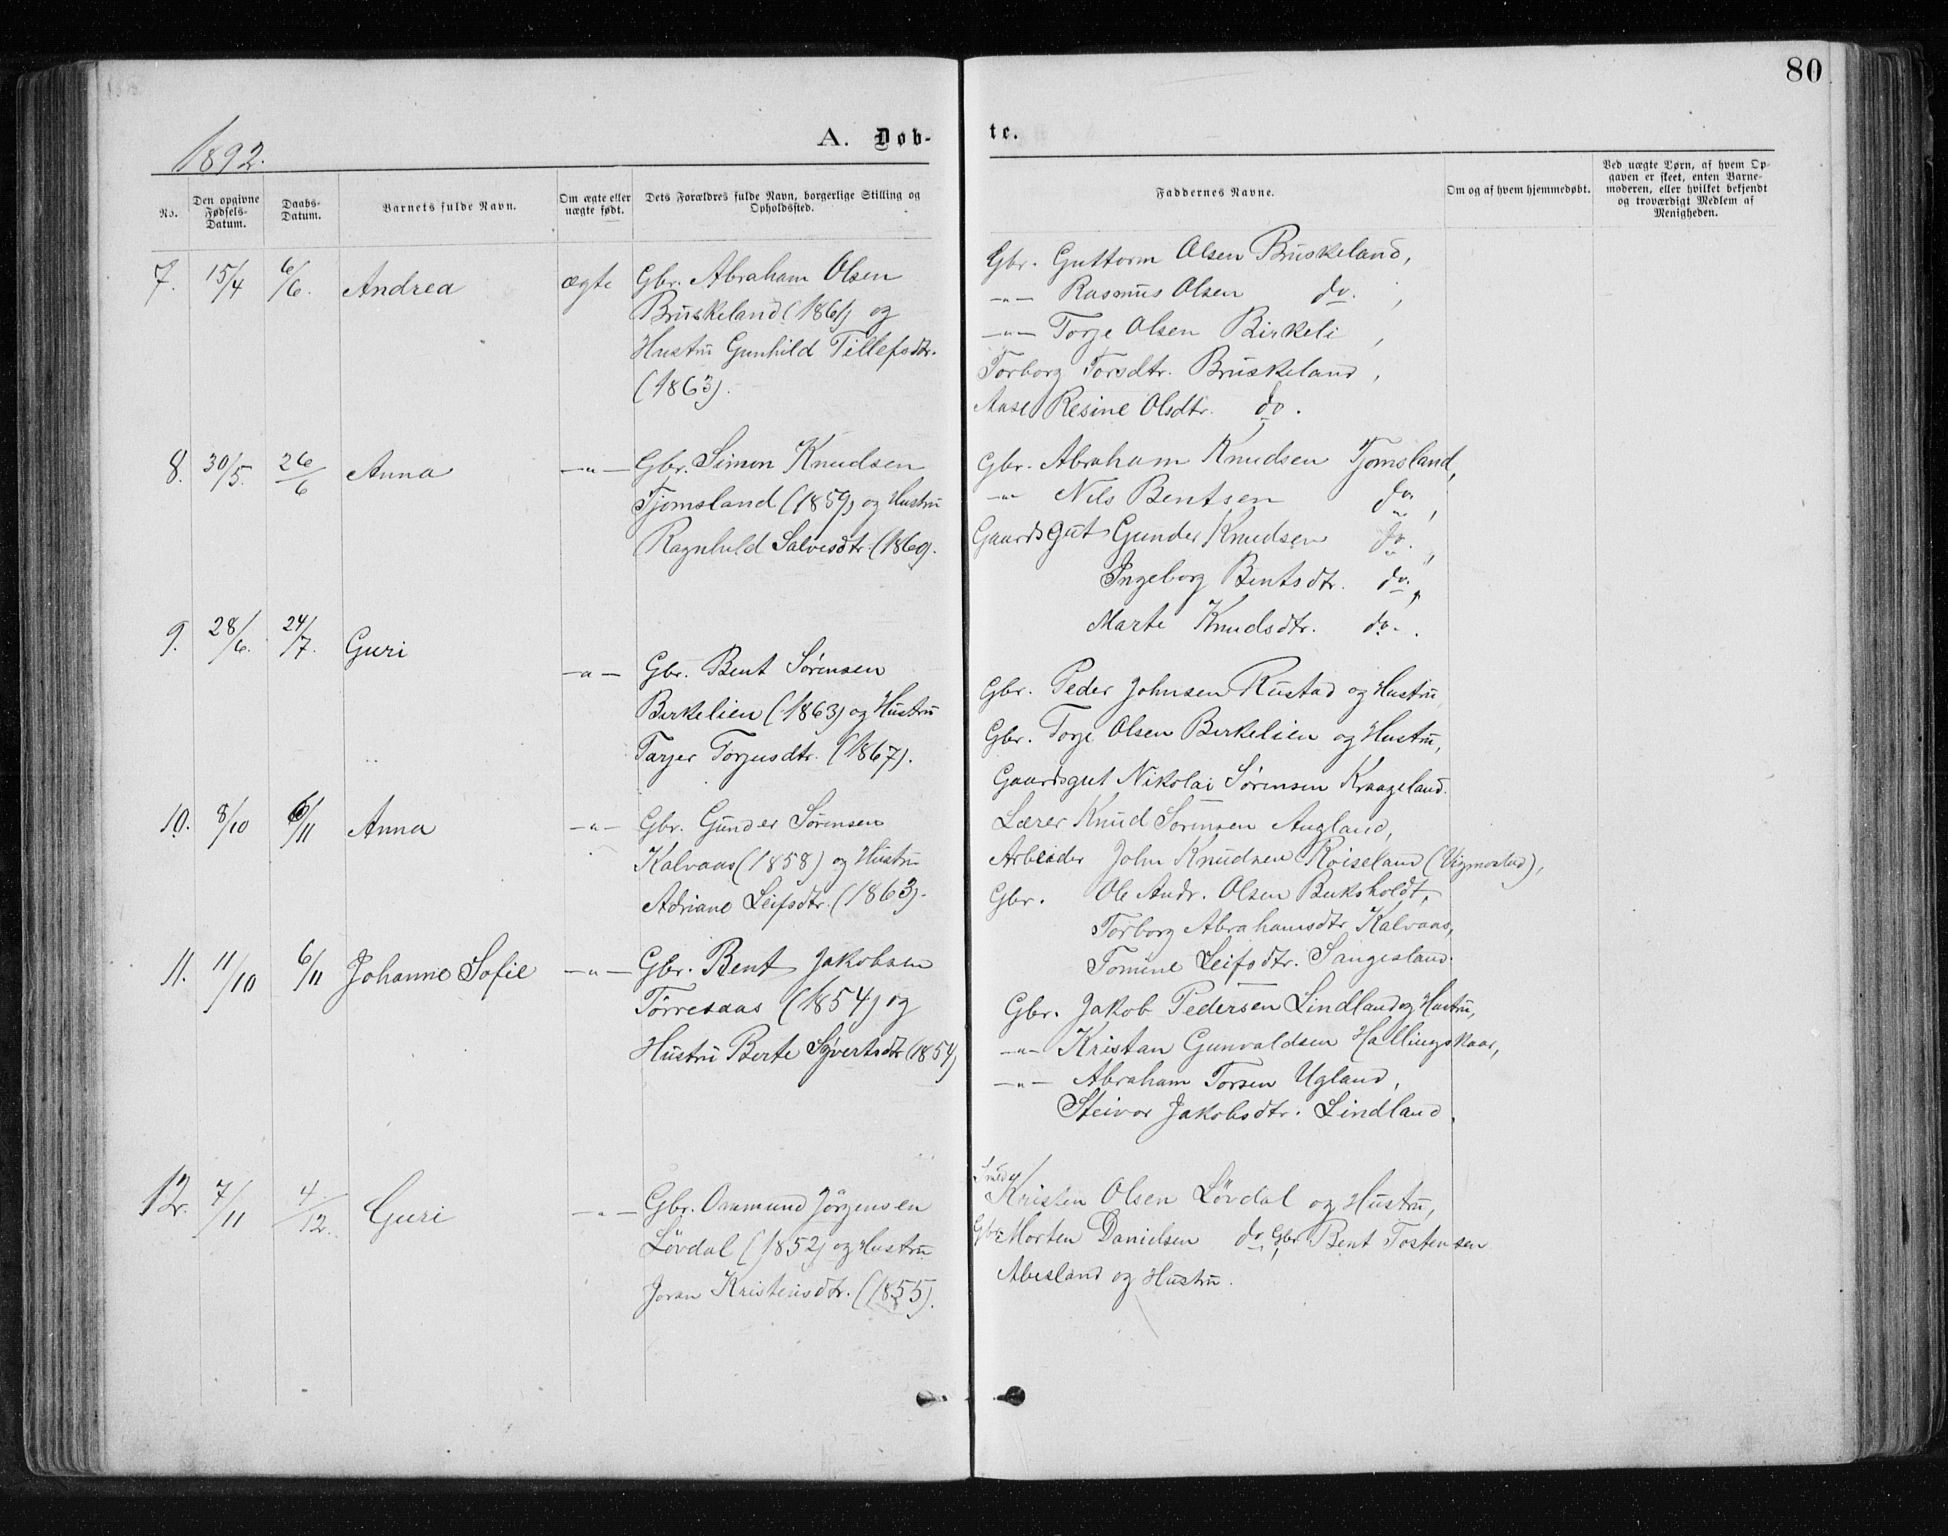 80
1892.
A. Døb-
te.
No.
Den opgivne Fødsels-Datum.
Daabs-Datum.
Barnets fulde Navn.
Om ægte eller uægte født.
Dets Forældres fulde Navn, borgerlige Stilling og Opholdssted.
Faddernes Navne.
Om og af hvem hjemmedøbt.
Ved uægte Børn, af hvem Op-
gaven er skeet, enten Barne-
moderen, eller hvilket bekjendt
og troværdigt Medlem af
Menigheden.
7. 15/4 6/6. Andrea ægte Gbr. Abraham Olsen
Bruskeland (1861) og
Hustru Gunhild Tillefsdtr.
(1863).
Gbr. Guttorm Olsen Bruskeland,
—„— Rasmus Olsen do. ,
—„— Torje Olsen Birkeli ,
Torborg Torsdtr. Bruskeland,
Aase Resine Olsdtr. do.
8. 30/5. 26/6 Anna —„— Gbr. Simon Knudsen
Tjomsland (1859) og Hustru
Ragnhild Salvesdtr. (1860).
Gbr. Abraham Knudsen Tjomsland,
—„— Nils Bentsen do. ,
Gaardsgut Gunder Knudsen do. ,
Ingeborg Bentsdtr. do. ,
Marte Knudsdtr. do. .
9. 28/6. 24/7. Guri —„— Gbr. Bent Sørensen
Birkelien (1863) og Hustru
Tarjer Torjusdtr. (1867).
Gbr. Peder Johnsen Rustad og Hustru,
Gbr. Torje Olsen Birkelien og Hustru,
Gaardsgut Nikolai Sørensen Kraageland.
10. 8/10 6/11 Anna —„— Gbr. Gunder Sørensen
Kalvaas (1858) og Hustru
Adriane Leifsdtr. (1863).
Lærer Knud Sørensen Augland,
Arbeider John Knudsen Røiseland (Vigmostad),
Gbr. Ole Andr. Olsen Buksholdt,
Torborg Abrahamsdtr. Kalvaas,
Tomine Leifsdtr. Sangesland.
11. 11/10 6/11 Johanne Sofie —„— Gbr. Bent Jakobsen
Tørresaas (1854) og
Hustru Berte Syvertsdtr. (1854)
Gbr. Jakob Pedersen Lindland og Hustru,
—„— Kristan Gunvaldsen Hallingskaar,
—„— Abraham Torsen Ugland,
Steivor Jakobsdtr. Lindland.
12. 7/11 4/12. Guri —„— Gbr. Ommund Jörgensen
Lövdal (1852) og Hustru
Joran Kristensdtr. (1855).
Kristen Olsen Lövdal og Hustru,
Gbr. Morten Danielsen do., Gbr. Bent Tostensen
Abesland og Hustru.